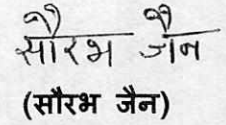 सौरभ जैन
(सौरभ जैन)